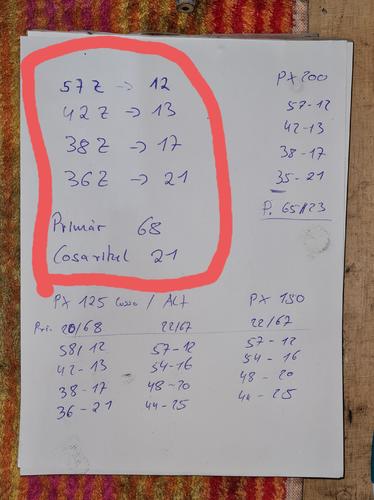 57 Z -> 12
42 Z -> 13
38 Z -> 17
36 Z -> 21
Primär 68
Cosaritzel 21
PX 200
57-12
42-13
38-17
35-21
P. 65/23
PX 125 Lusso / Alt
Pri. 20/68 22/67
58/12 57-12
42-13 54-16
38-17 48-20
36-21 44-25
PX 150
22/67
57-12
54-16
48-20
44-25